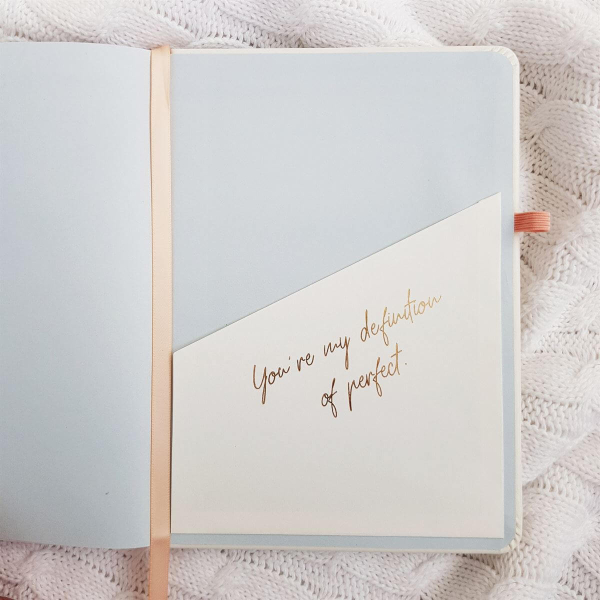 You're my definition
of perfect.